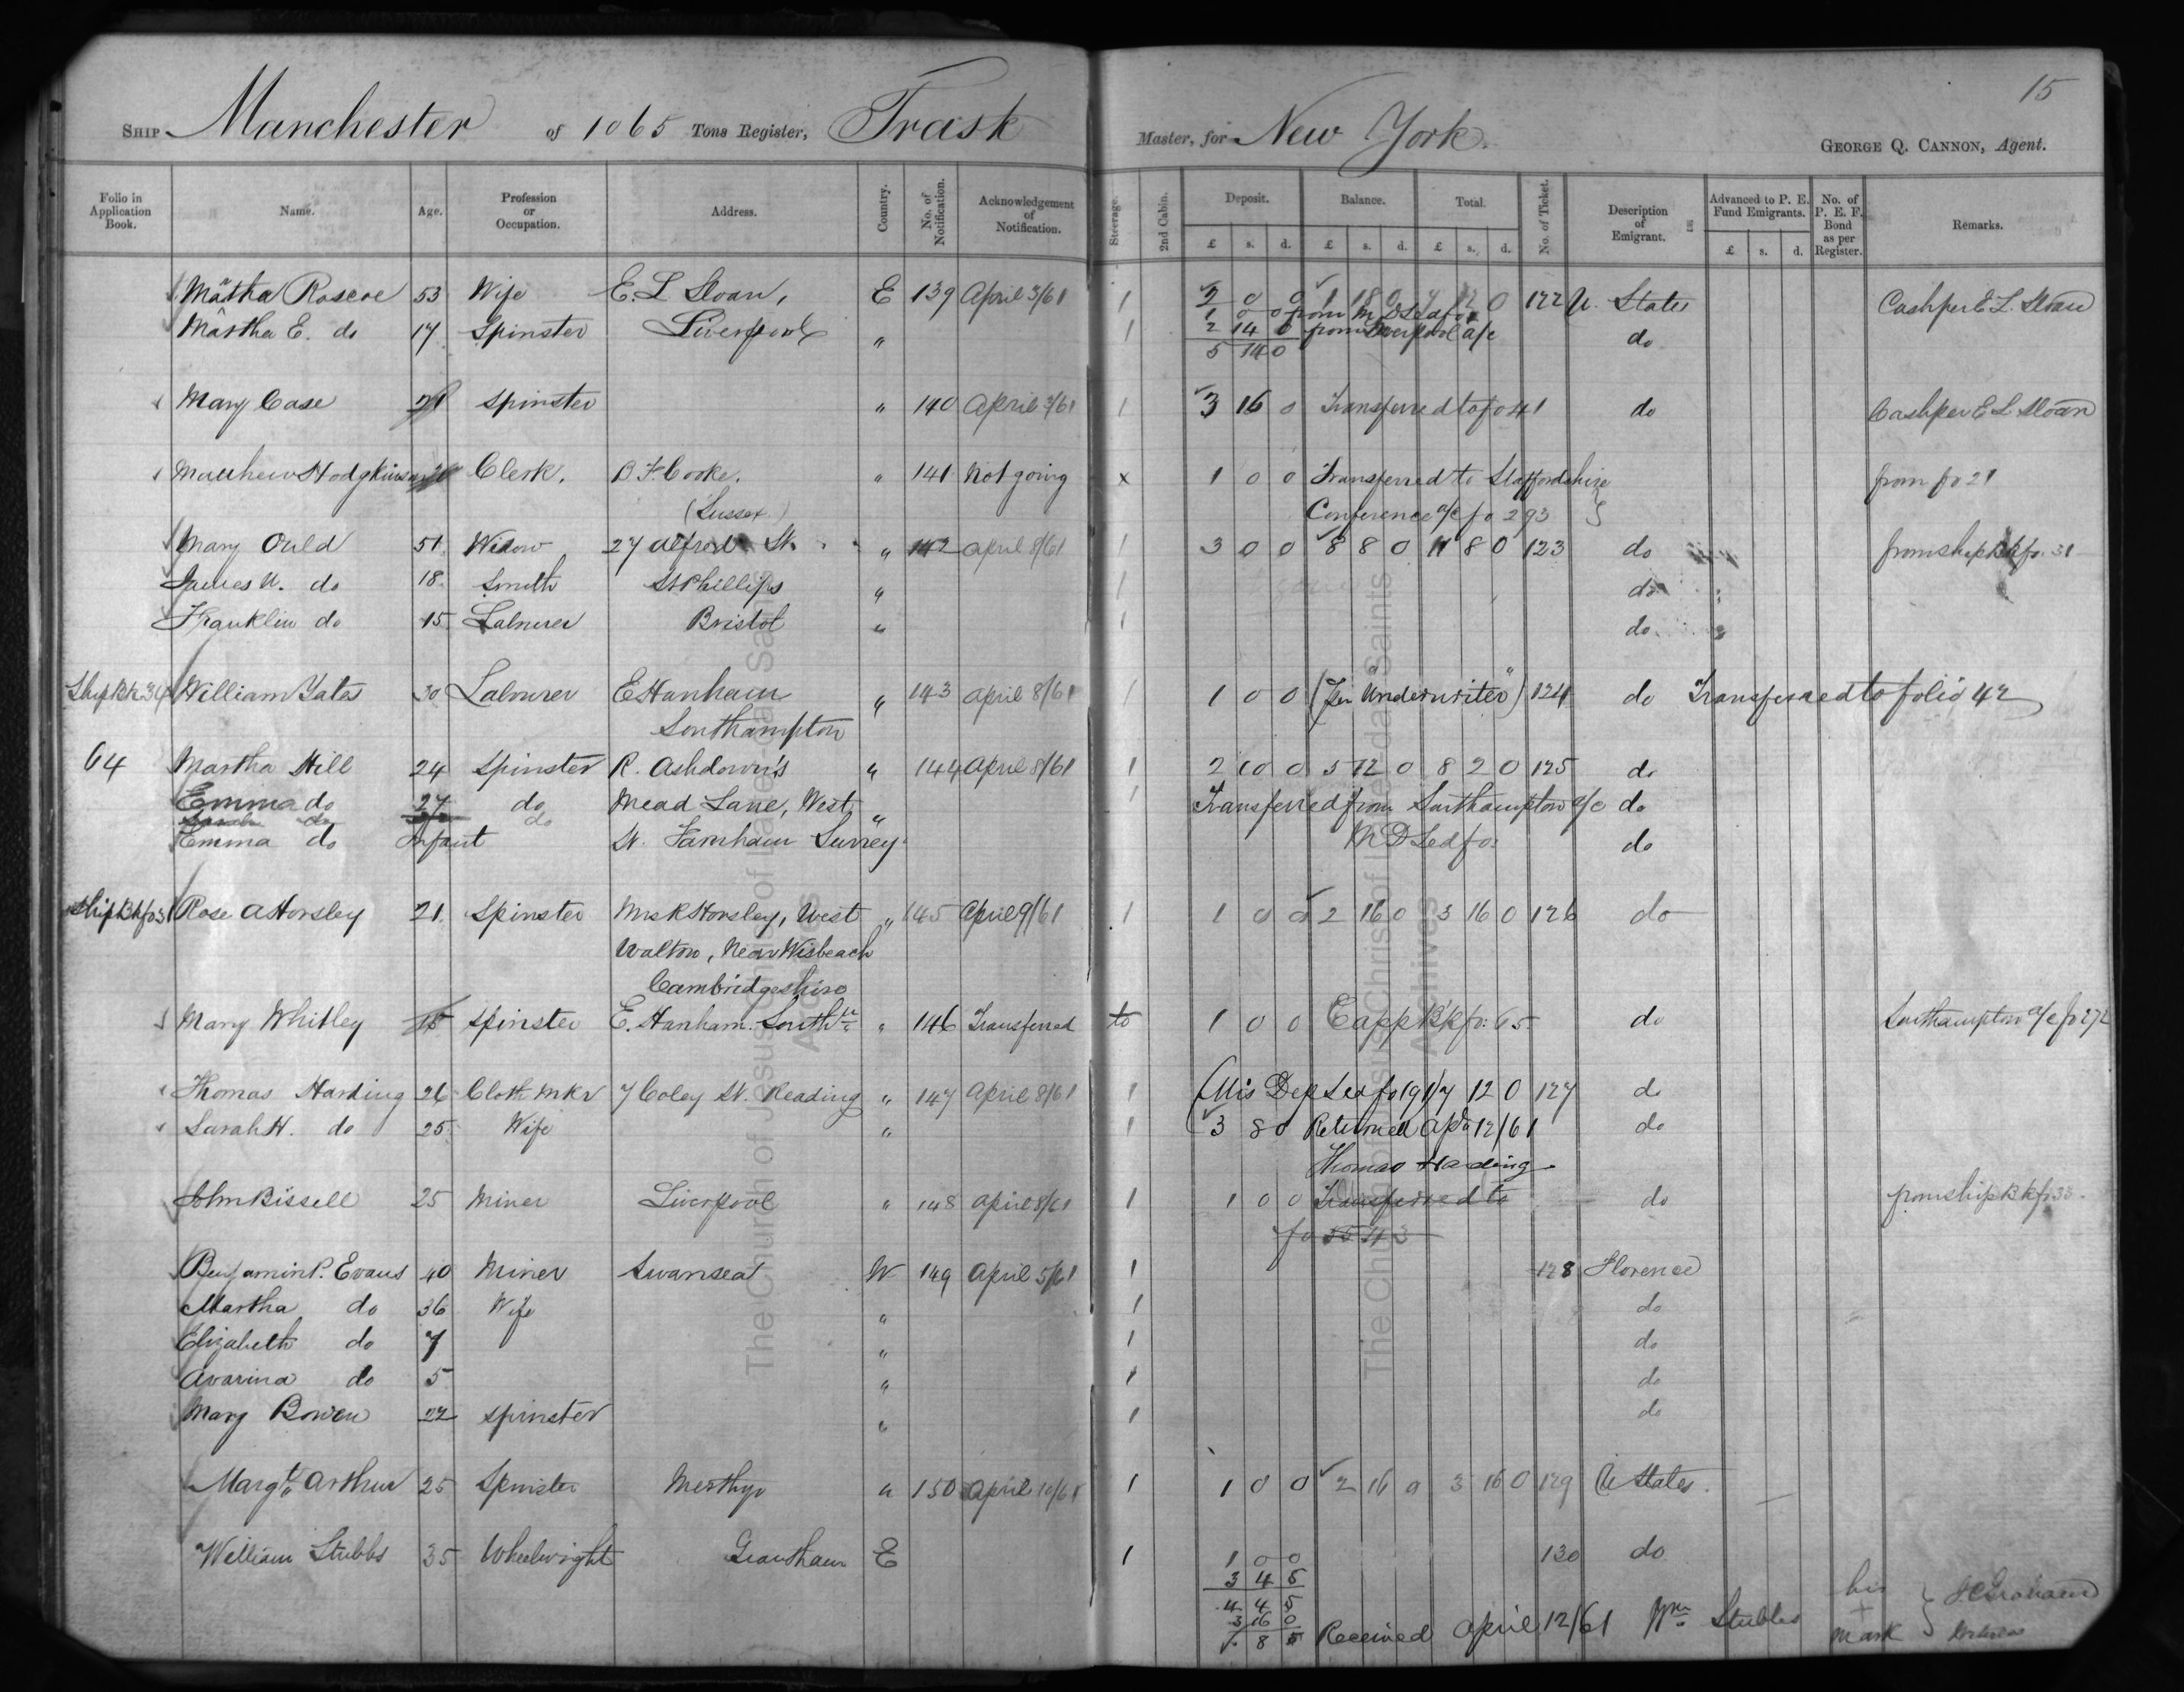 15
SHIP Manchester of 1065 Tons Register, Trask Master, for New York. GEORGE Q. CANNON, Agent.
Folio in Application Book. Name. Age. Profession or Occupation. Address. Country. No. of Notification. Acknowledgement of Notification. Steerage. 2nd Cabin. Deposit. Balance. Total. No. of Ticket. Description of Emigrant. Advanced to P. E. Fund Emigrants. No. of P. E. F. Bond as per Register. Remarks.
£ s. d. £ s. d. £ s. d. £ s. d.
Martha Roscoe 53 Wife E L Sloan, E 139 April 3/61 1 2 0 0 1 18 0 7 12 0 122 U. States Cash per E L. Sloan
1 0 0 from M D Led fo
Martha E. do 17 Spinster Liverpool " 1 2 14 0 from Liverpool a/c do
5 14 0
Mary Case 21 Spinster " 140 April 3/61 1 3 16 0 Transferred to fo 41 do Cash per E L Sloan
Matthew Hodgkinson Clerk. B F. Cooke. " 141 Not going x 1 0 0 Transferred to Staffordshire from fo 21
(Sussex) Conference a/c fo 293
Mary Ould 51 Widow 27 Alfred St. " 142 April 8/61 1 3 0 0 8 8 0 11 8 0 123 do from ship Bk fo. 31
James W. do 18 Smith St Phillips " 1 do
Franklin do 15 Labourer Bristol " 1 do
Ship Bk 34 William Yates 30 Labourer E Hanham " 143 April 8/61 1 1 0 0 (Per "Underwriter") 124 do Transferred to folio 42
Southampton
64 Martha Hill 24 Spinster R. Ashdown's " 144 April 8/61 1 2 10 0 5 12 0 8 2 0 125 do
Emma do 27 do Mead Lane, West " 1 Transferred from Southampton a/c do
Sarah do do
Emma do Infant St. Farnham Surrey M D Led fo. do
Ship Bk fo 31 Rose A Horsley 21 Spinster Mrs R Horsley, West " 145 April 9/61 1 1 0 0 2 16 0 3 16 0 126 do
Walton, Near Wisbeach
Cambridgeshire
Mary Whitley 15 Spinster E. Hanham. Southtn " 146 Transferred to 1 0 0 E app Bk fo: 65 do Southampton a/c fo 272
Thomas Harding 26 Cloth Mkr 7 Coley St. Reading " 147 April 8/61 1 (Mis Dep Led fo 191) 7 12 0 127 do
Sarah H. do 25 Wife " 1 3 8 0 Returned Apl 12/61 do
Thomas Harding
John Bissell 25 Miner Liverpool " 148 April 8/61 1 1 0 0 Transferred to do from ship Bk fo 33
fo 55 43
Benjamin P. Evans 40 Miner Swansea W 149 April 5/61 1 128 Florence
Martha do 36 Wife " 1 do
Elizabeth do 7 " 1 do
Avarina do 5 " 1 do
Mary Bowen 22 Spinster " 1 do
Margt. Arthur 25 Spinster Merthyr " 150 April 10/61 1 1 0 0 2 16 0 3 16 0 129 U States
William Stubbs 35 Wheelwright Grantham E 1 1 0 0 130 do
3 4 5
4 4 5 his
3 16 0
8 5 Received April 12/61 Wm. Stubbs + mark
The Church of Jesus Christ of Latter-day Saints
Archives
The Church of Jesus Christ of Latter-day Saints
Archives